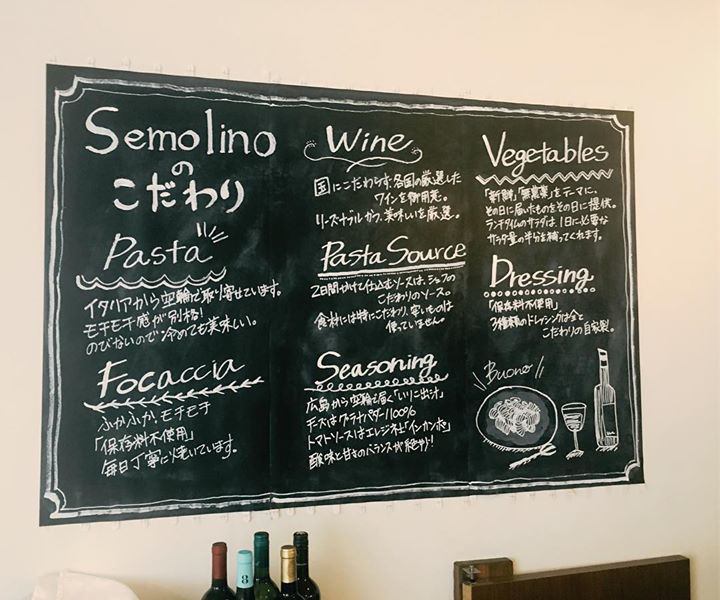 Semolino
の
こだわり
Pasta
イタリアから空輸で取り寄せています。
モチモチ感が別格!
のびないので冷めても美味しい。
Focaccia
ふかふか、モチモチ
「保存料不使用」
毎日丁寧に焼いています。
Wine
国にこだわらず、各国の厳選した
ワインを御用意。
リーズナブルかつ、美味しいを厳選。
Pasta Source
2日間かけて仕込むソースは、シェフの
こだわりのソース。
食材には特にこだわり、安いものは
使っていません。
Seasoning
広島から空輸で届く「いりこ出汁」
チーズはグラナパダーノ100%
トマトソースはエレジネ社「インカンポ」
酸味と甘さのバランスが絶妙!
Vegetables
「新鮮」「無農薬」をテーマに、
その日に届いたものをその日に提供。
ランチタイムのサラダは、1日に必要な
サラダ量の半分を補ってくれます。
Dressing
「保存料不使用」
3種類のドレッシングは全て
こだわりの自家製。
Buono!
8